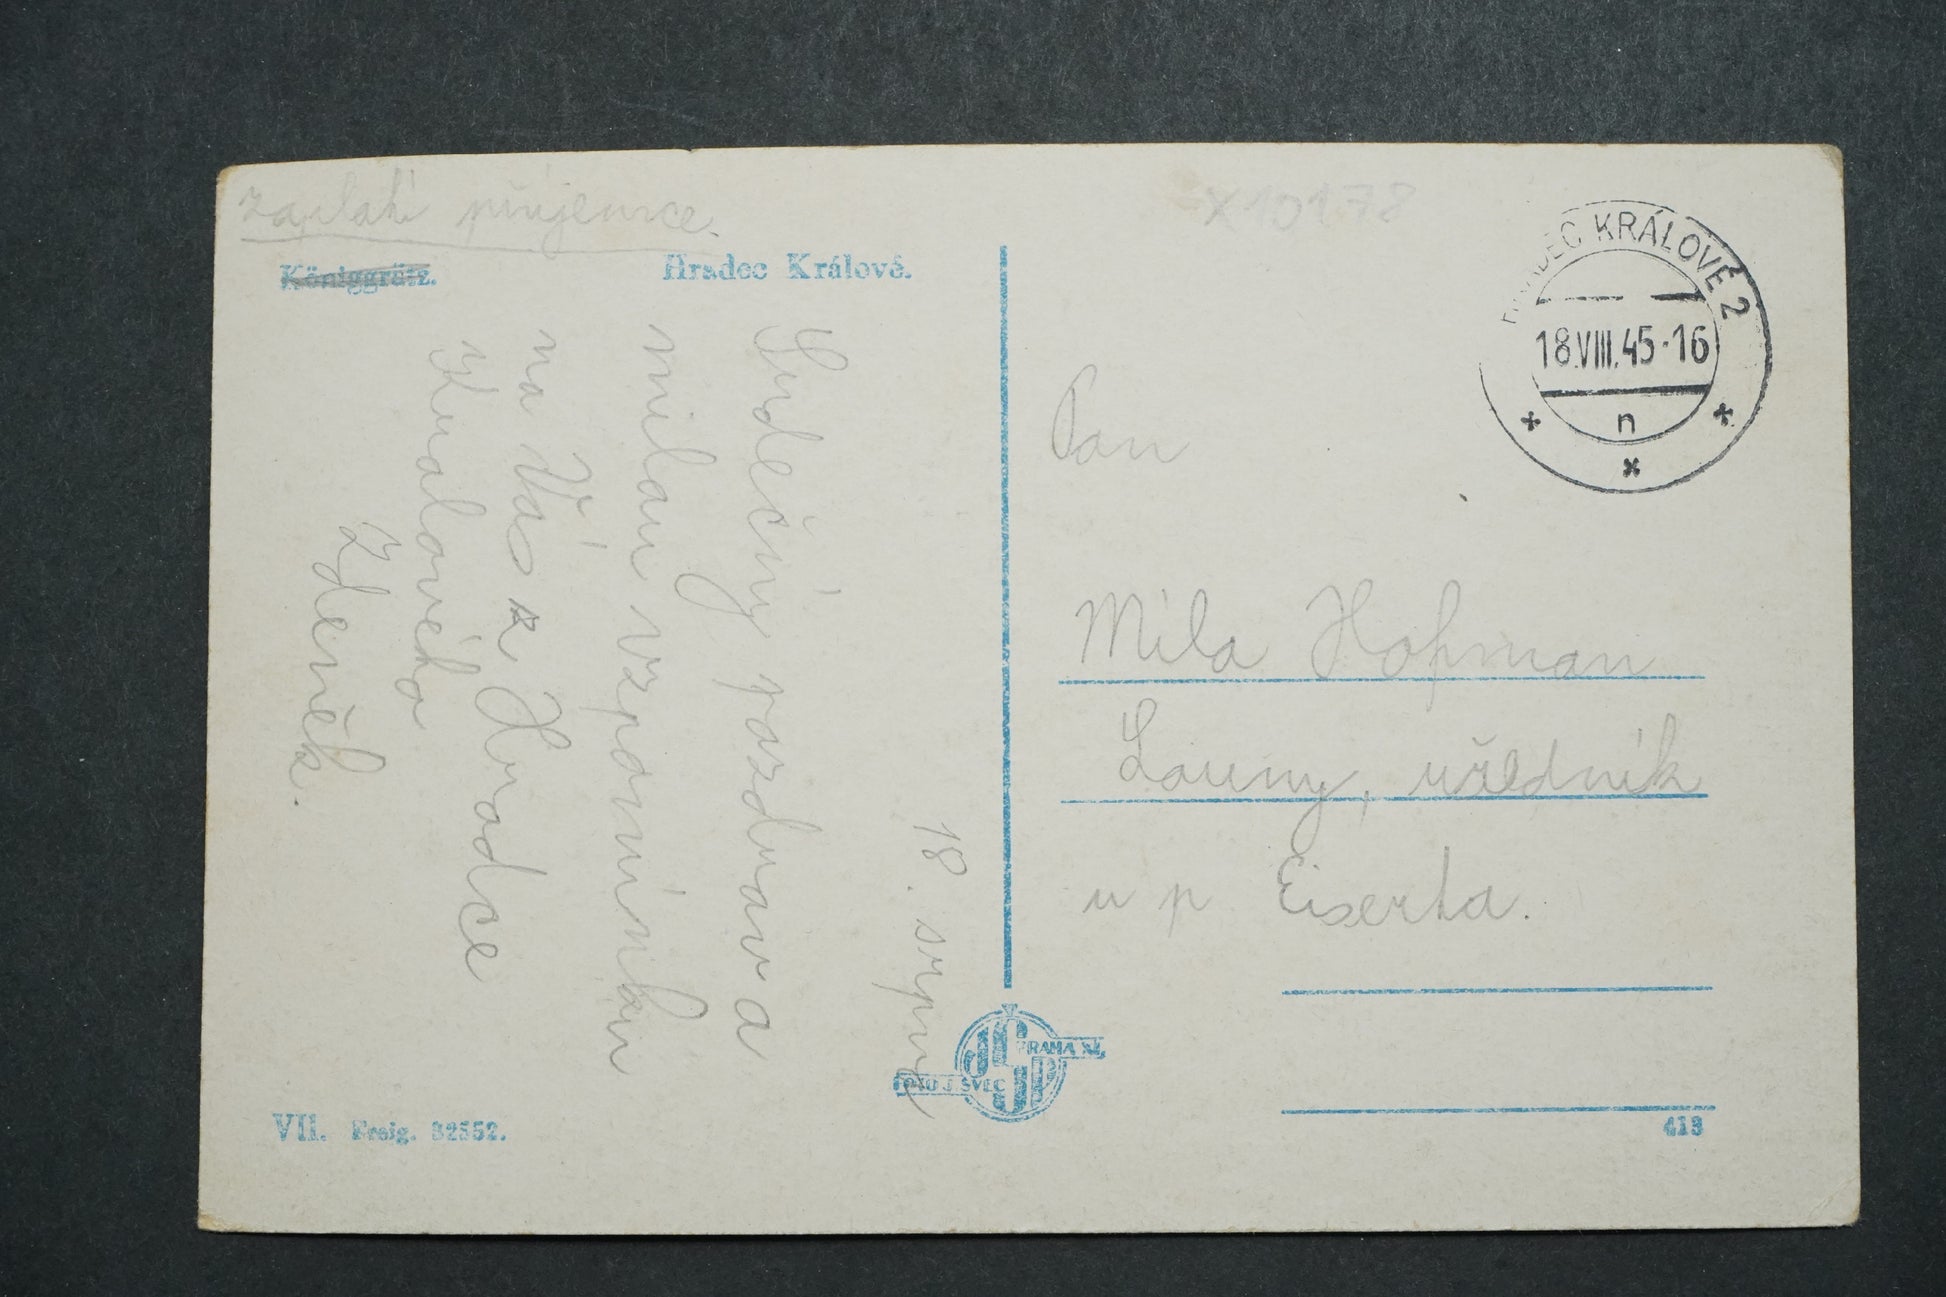 zaplatí příjemce.
Königgrätz. Hradec Králové.
18. srpna
Srdečný pozdrav a
milou vzpomínku
na Vás z Hradce
Králového
Zdeněk.
VII. Freig. 32552.
FOTO J. ŠVEC PRAHA XI.
JŠP
X10178
HRADEC KRÁLOVÉ 2
18.VIII.45-16
n
Pan
Míla Hofman
Louny, úředník
u p Eiserta.
413